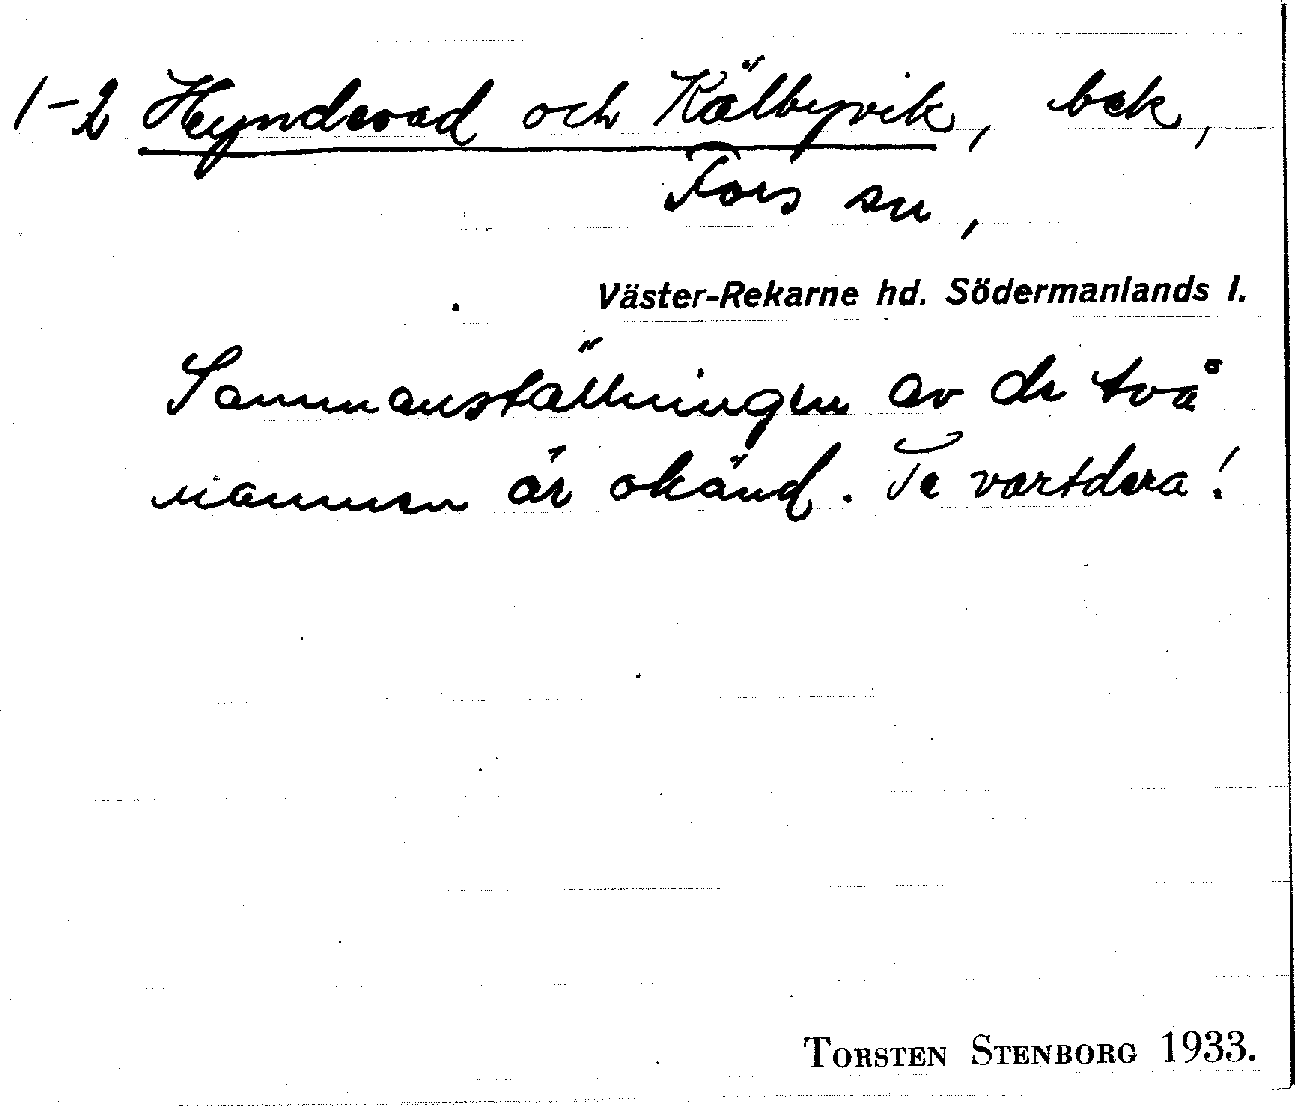 1-2 Hyndevad och Kälbyvik, bek,
Fors sn,
Väster-Rekarne hd. Södermanlands l.
Sammanställningen av de två
namnen är okänd. Se vartdera!
TORSTEN STENBORG 1933.